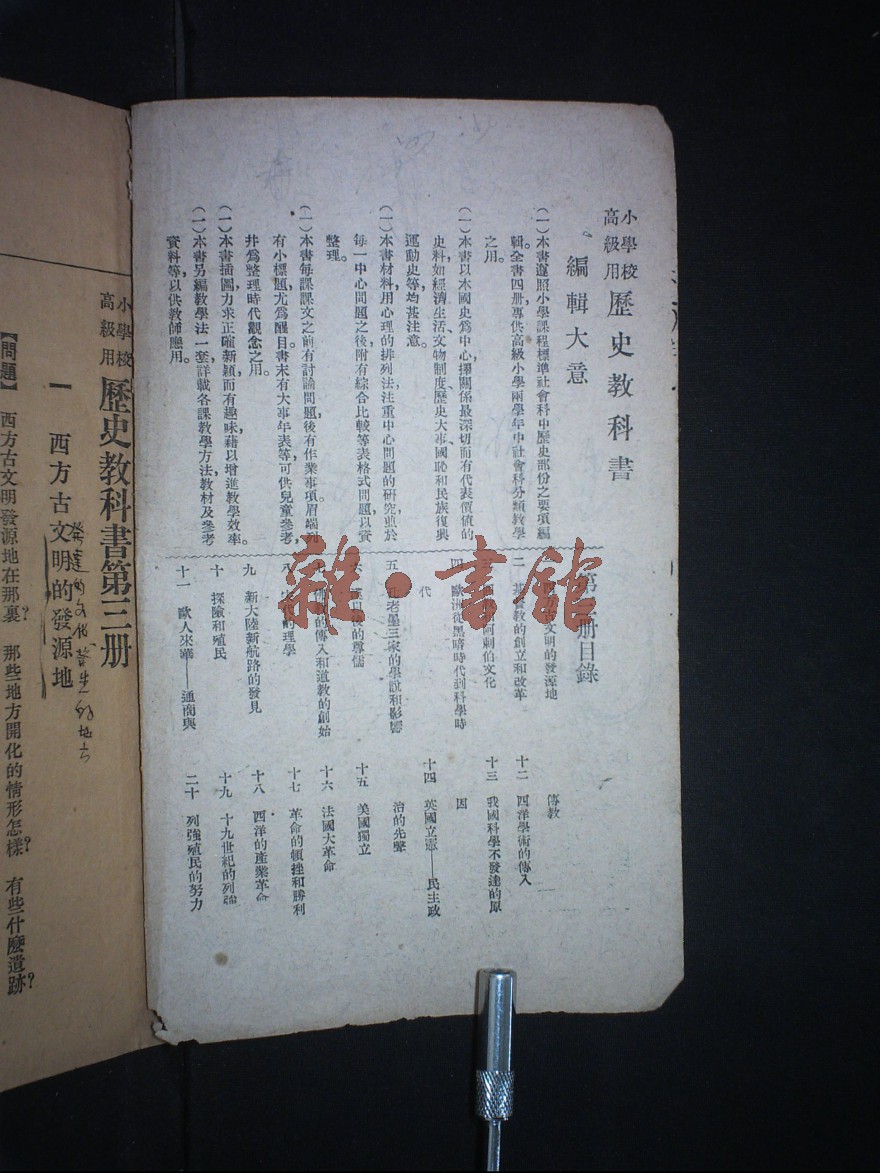 小學校高級用 歷史教科書
編輯大意
(一)本書遵照小學課程標準社會科中歷史部份之要項編
輯。全書四册,專供高級小學兩學年中社會科分類教學
之用。
(一)本書以本國史爲中心,擇關係最深切而有代表價値的
史料,如經濟生活、文物制度、歷史大事、國恥和民族復興
運動史等,均甚注意。
(一)本書材料,用心理的排列法,注重中心問題的研究,並於
每一中心問題之後,附有綜合比較等表格式問題,以資
整理。
(一)本書每課課文之前有討論問題,後有作業事項,眉端列
有小標題,尤爲醒目。書末有大事年表等,可供兒童參考,
幷爲整理時代觀念之用。
(一)本書插圖力求正確新穎而有趣味,藉以增進教學效率。
(一)本書另編教學法一套,詳載各課教學方法教材及參考
資料等,以供教師應用。
第三册目錄
文明的發源地
二 基督教的創立和改革
阿剌伯文化
四 歐洲從黑暗時代到科學時
代
五 老墨三家的學說和影響
以後的尊儒
的傳入和道教的創始
八 代的理學
九 新大陸新航路的發見
十 探險和殖民
十一 歐人來華——通商與
傳教
十二 西洋學術的傳入
十三 我國科學不發達的原
因
十四 英國立憲——民主政
治的先聲
十五 美國獨立
十六 法國大革命
十七 革命的頓挫和勝利
十八 西洋的產業革命
十九 十九世紀的列強
二十 列強殖民的努力
雜·書館
小學校高級用 歷史教科書第三册
一 西方古文明的發源地
發達的文化發生的地方
【問題】 西方古文明發源地在那裏? 那些地方開化的情形怎樣? 有些什麼遺跡?